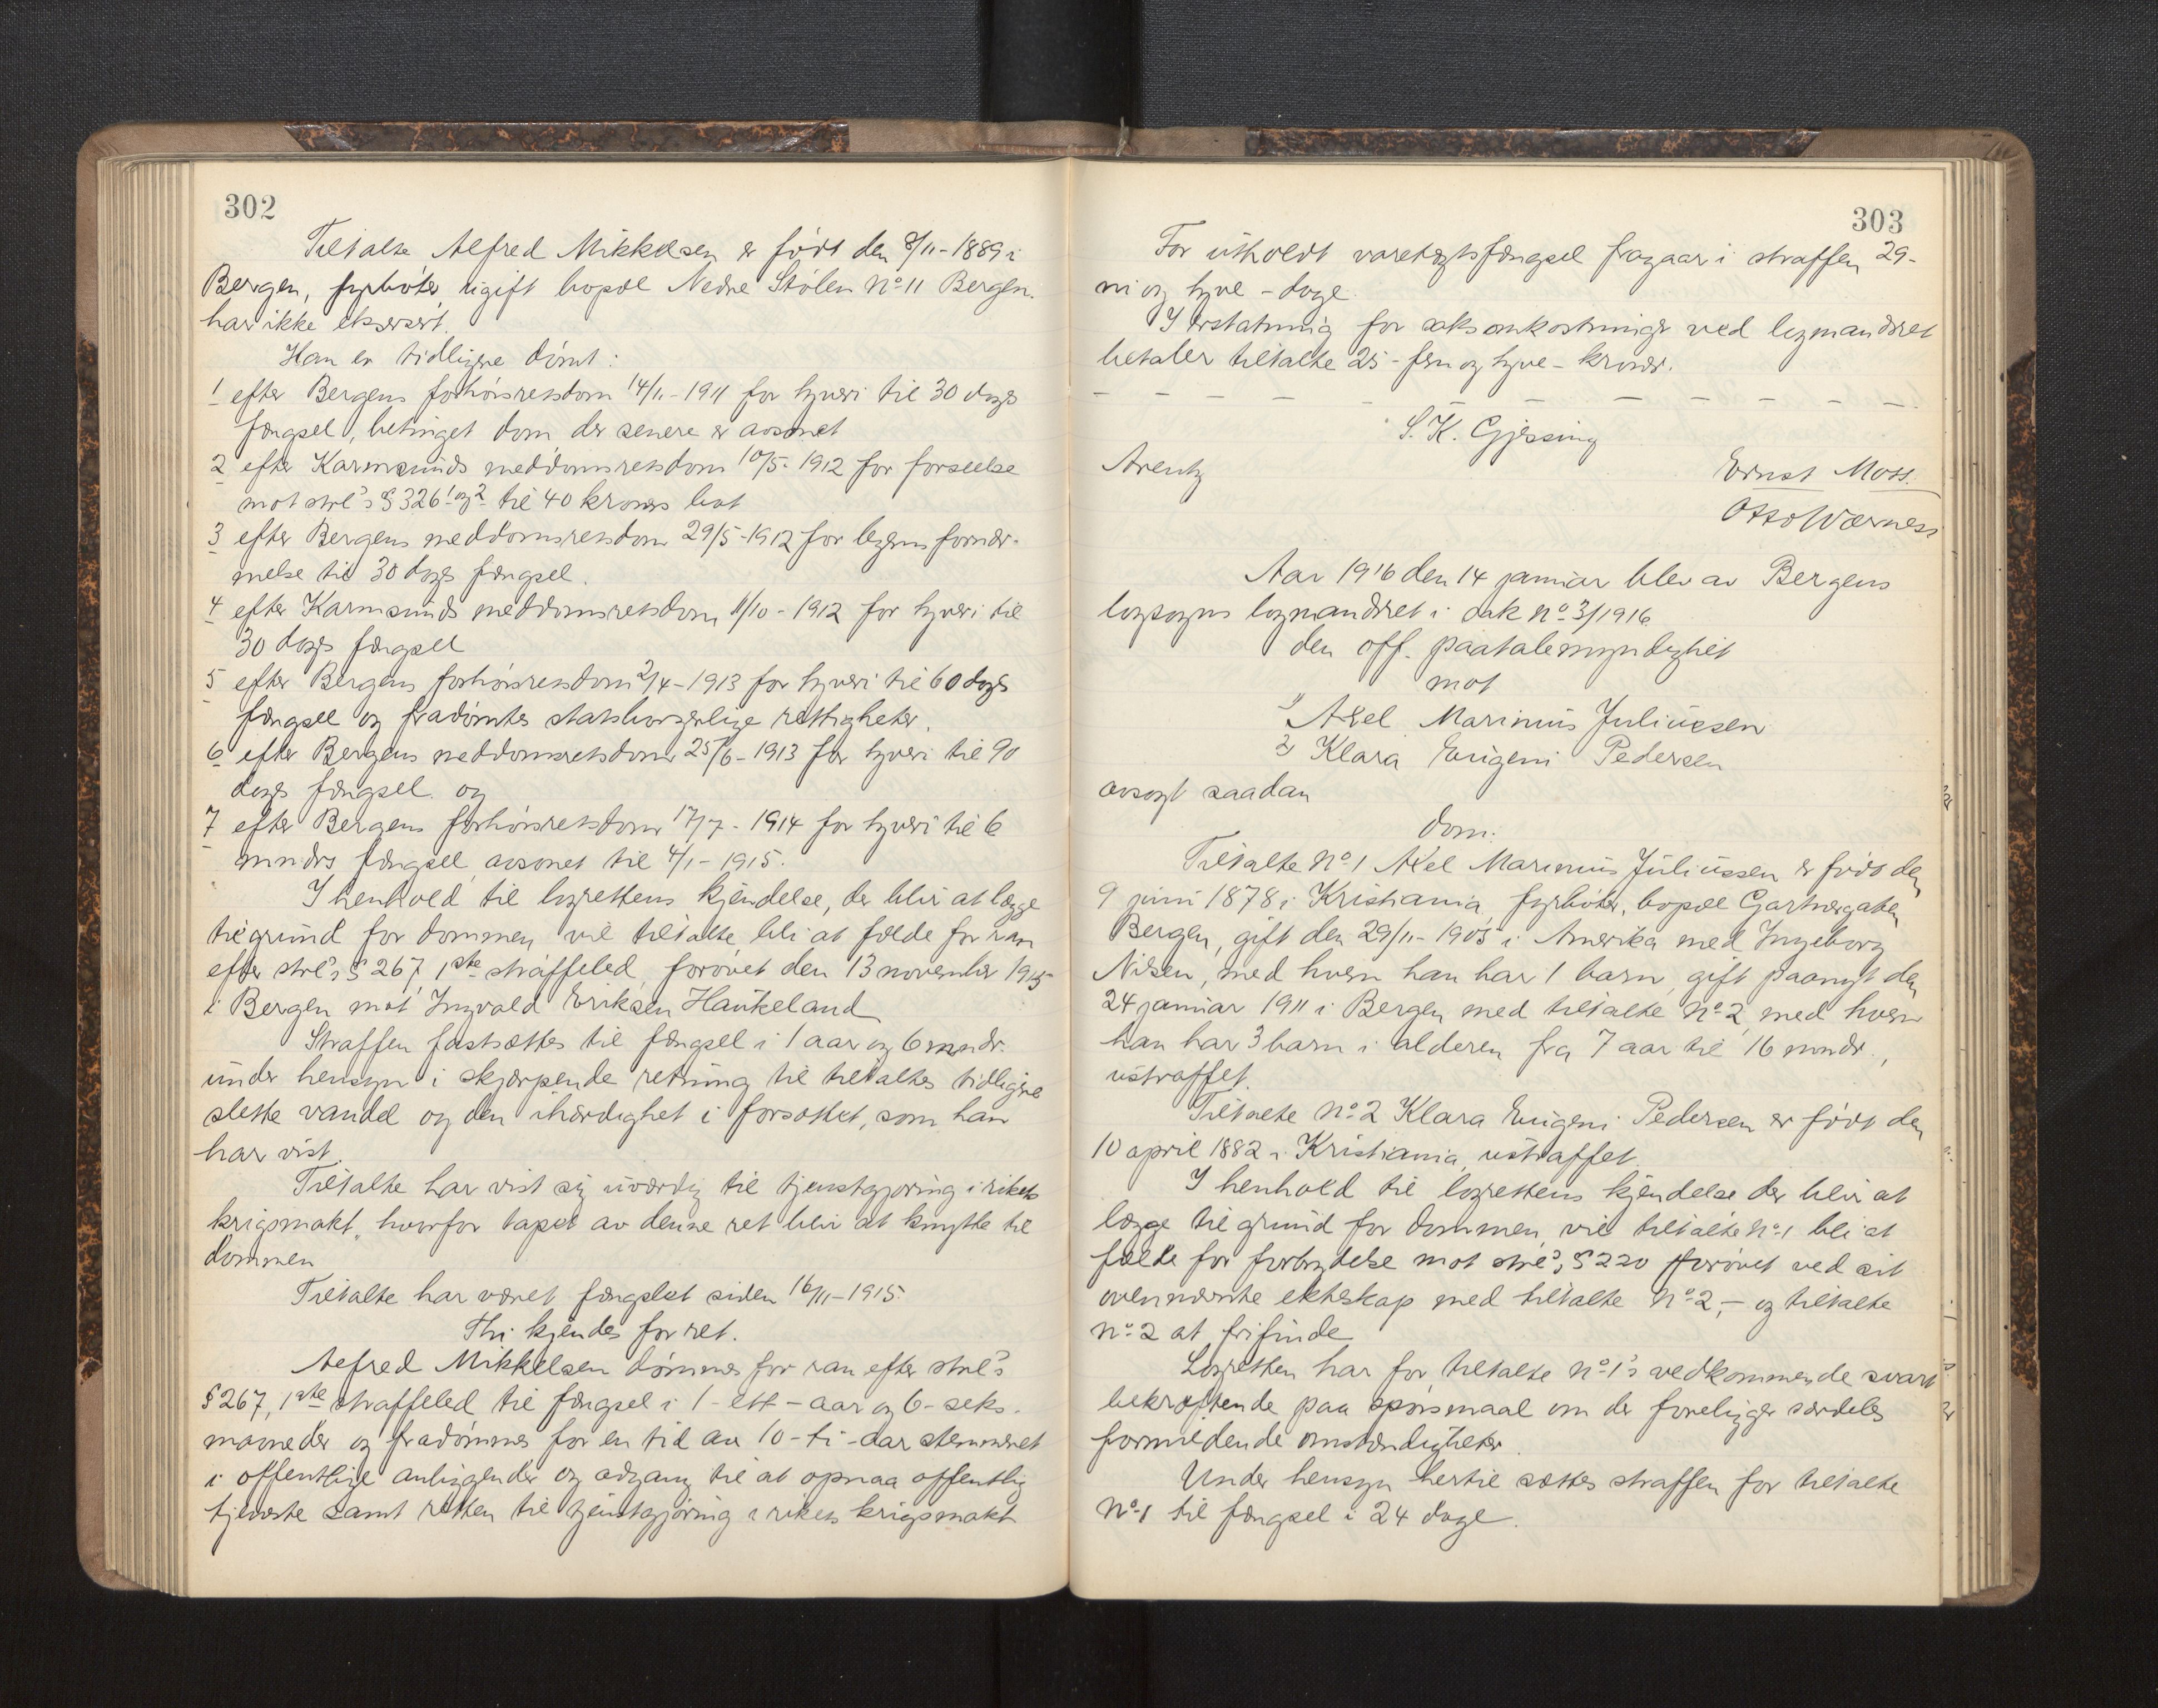 302
Tiltalte Alfred Mikkelsen er født den 8/11-1889 i
Bergen, fyrbøter ugift bopæl Nedre Stölen No 11 Bergen.
har ikke eksersert.
Han er tidligere dømt:
1 efter Bergens forhørsretsdom 14/11-1911 for tyveri til 30 dages
fængsel, betinget dom der senere er avsonet
2 efter Karmsunds meddomsretsdom 10/5-1912 for forseelse
mot strl's § 326 1 og 2 til 40 kroners bot
3 efter Bergens meddomsretsdom 29/5-1912 for legemsfornær-
melse til 30 dages fængsel.
4 efter Karmsunds meddomsretsdom 11/10-1912 for tyveri til
30 dages fængsel
5 efter Bergens forhørsretsdom 2/4-1913 for tyveri til 60 dages
fængsel og fradømtes statsborgerlige rettigheter.
6 efter Bergens meddomsretsdom 25/6-1913 for tyveri til 90
dages fængsel og
7 efter Bergens forhørsretsdom 17/7-1914 for tyveri til 6
mndrs fængsel, avsonet til 4/1-1915.
I henhold til lagrettens kjendelse, der blir at lægge
til grund for dommen vil tiltalte bli at fælde for ran
efter strl's § 267, 1ste straffeled, forøvet den 13 november 1915
i Bergen mot Ingvald Eriksen Haukeland
Straffen fastsættes til fængsel i 1 aar og 6 mndr.
under hensyn i skjærpende retning til tiltaltes tidligere
slette vandel og den ihærdighet i forsættet, som han
har vist.
Tiltalte har vist sig uværdig til tjenstgjøring i rikets
krigsmakt, hvorfor tapet av denne ret blir at knytte til
dommen
Tiltalte har været fængslet siden 16/11-1915.
Thi kjendes for ret.
Alfred Mikkelsen dømmes for ran efter strl's
§ 267, 1ste straffeled til fængsel i 1-ett-aar og 6-seks-
maaneder og fradømmes for en tid av 10-ti-aar stemmeret
i offentlige anliggender og adgang til at opnaa offentlig
tjeneste samt retten til tjenstgjøring i rikets krigsmakt
303
For utholdt varetægtsfængsel fragaar i straffen 29-
ni og tyve-dage.
I erstatning for saksomkostninger ved lagmandsret
betaler tiltalte 25-fem og tyve-kroner.
S. K. Gjessing
Arentz
Ernst Moss.
Otto Wærness
Aar 1916 den 14 januar blev av Bergens
lagsogns lagmandsret i sak No 3/1916
den off. paatalemyndighet
mot
1) Axel Marinius Juliussen
2) Klara Eugeni Pedersen
avsagt saadan
dom:
Tiltalte No 1 Axel Marinius Juliussen er født den
9 juni 1878 i Kristiania, fyrbøter, bopæl Gartnergaten
Bergen, gift den 29/11-1905 i Amerika med Ingeborg
Nilsen, med hvem han har 1 barn, gift paanyt den
24 januar 1911 i Bergen med tiltalte No 2, med hvem
han har 3 barn i alderen fra 7 aar til 16 mndr.,
ustraffet.
Tiltalte No 2 Klara Eugeni Pedersen er født den
10 april 1882 i Kristiania, ustraffet.
I henhold til lagrettens kjendelse der blir at
lægge til grund for dommen, vil tiltalte No 1 bli at
fælde for forbrydelse mot strl's § 220 forøvet ved sit
ovennævnte ekteskap med tiltalte No 2,- og tiltalte
No 2 at frifinde
Lagretten har for tiltalte No 1's vedkommende svart
bekræftende paa spørsmaal om der foreligger særdeles
formildende omstændigheter.
Under hensyn hertil sættes straffen for tiltalte
No 1 til fængsel i 24 dage.